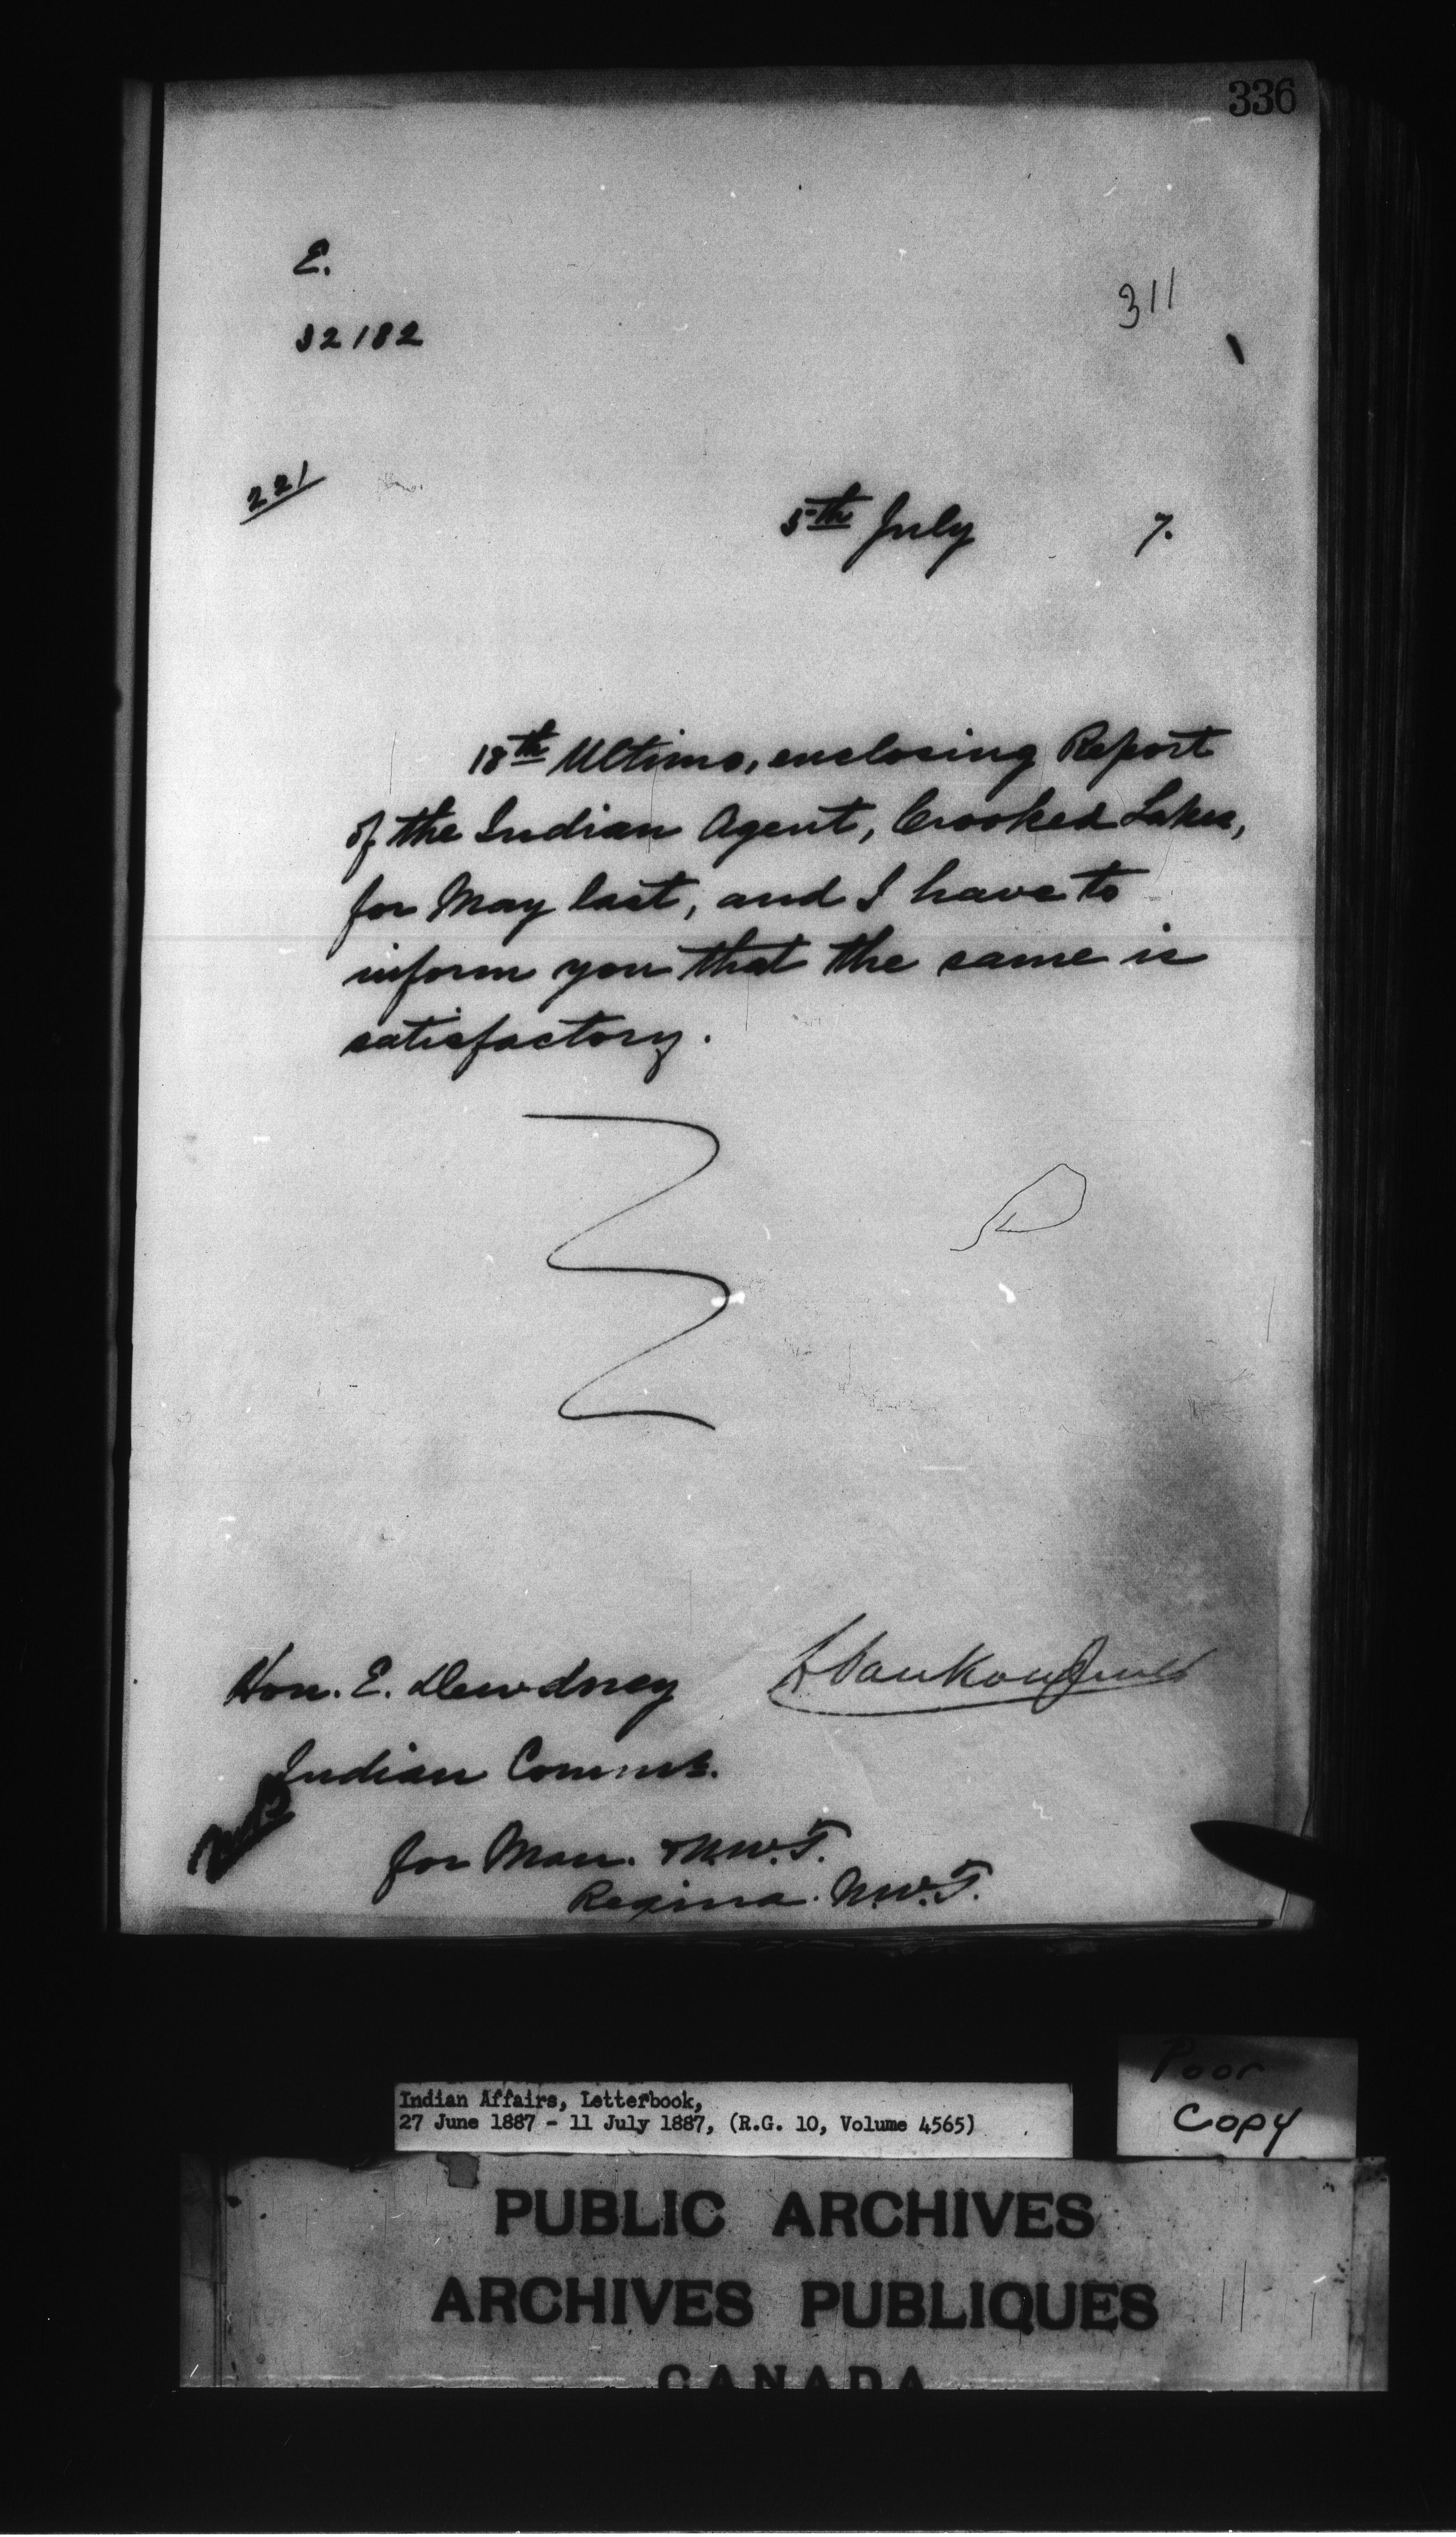 336
E.
311
32182
221
5th July 7.
18th Ultimo, enclosing Report
of the Indian Agent, Crooked Lakes,
for May last, and I have to
inform you that the same is
satisfactory.
Hon. E. Dewdney
L Vankoughnet
Indian Commr.
for Man. & N.W.T.
Regina. N.W.T.
Poor
Copy
Indian Affairs, Letterbook,
27 June 1887 - 11 July 1887, (R.G. 10, Volume 4565)
PUBLIC ARCHIVES
ARCHIVES PUBLIQUES
CANADA